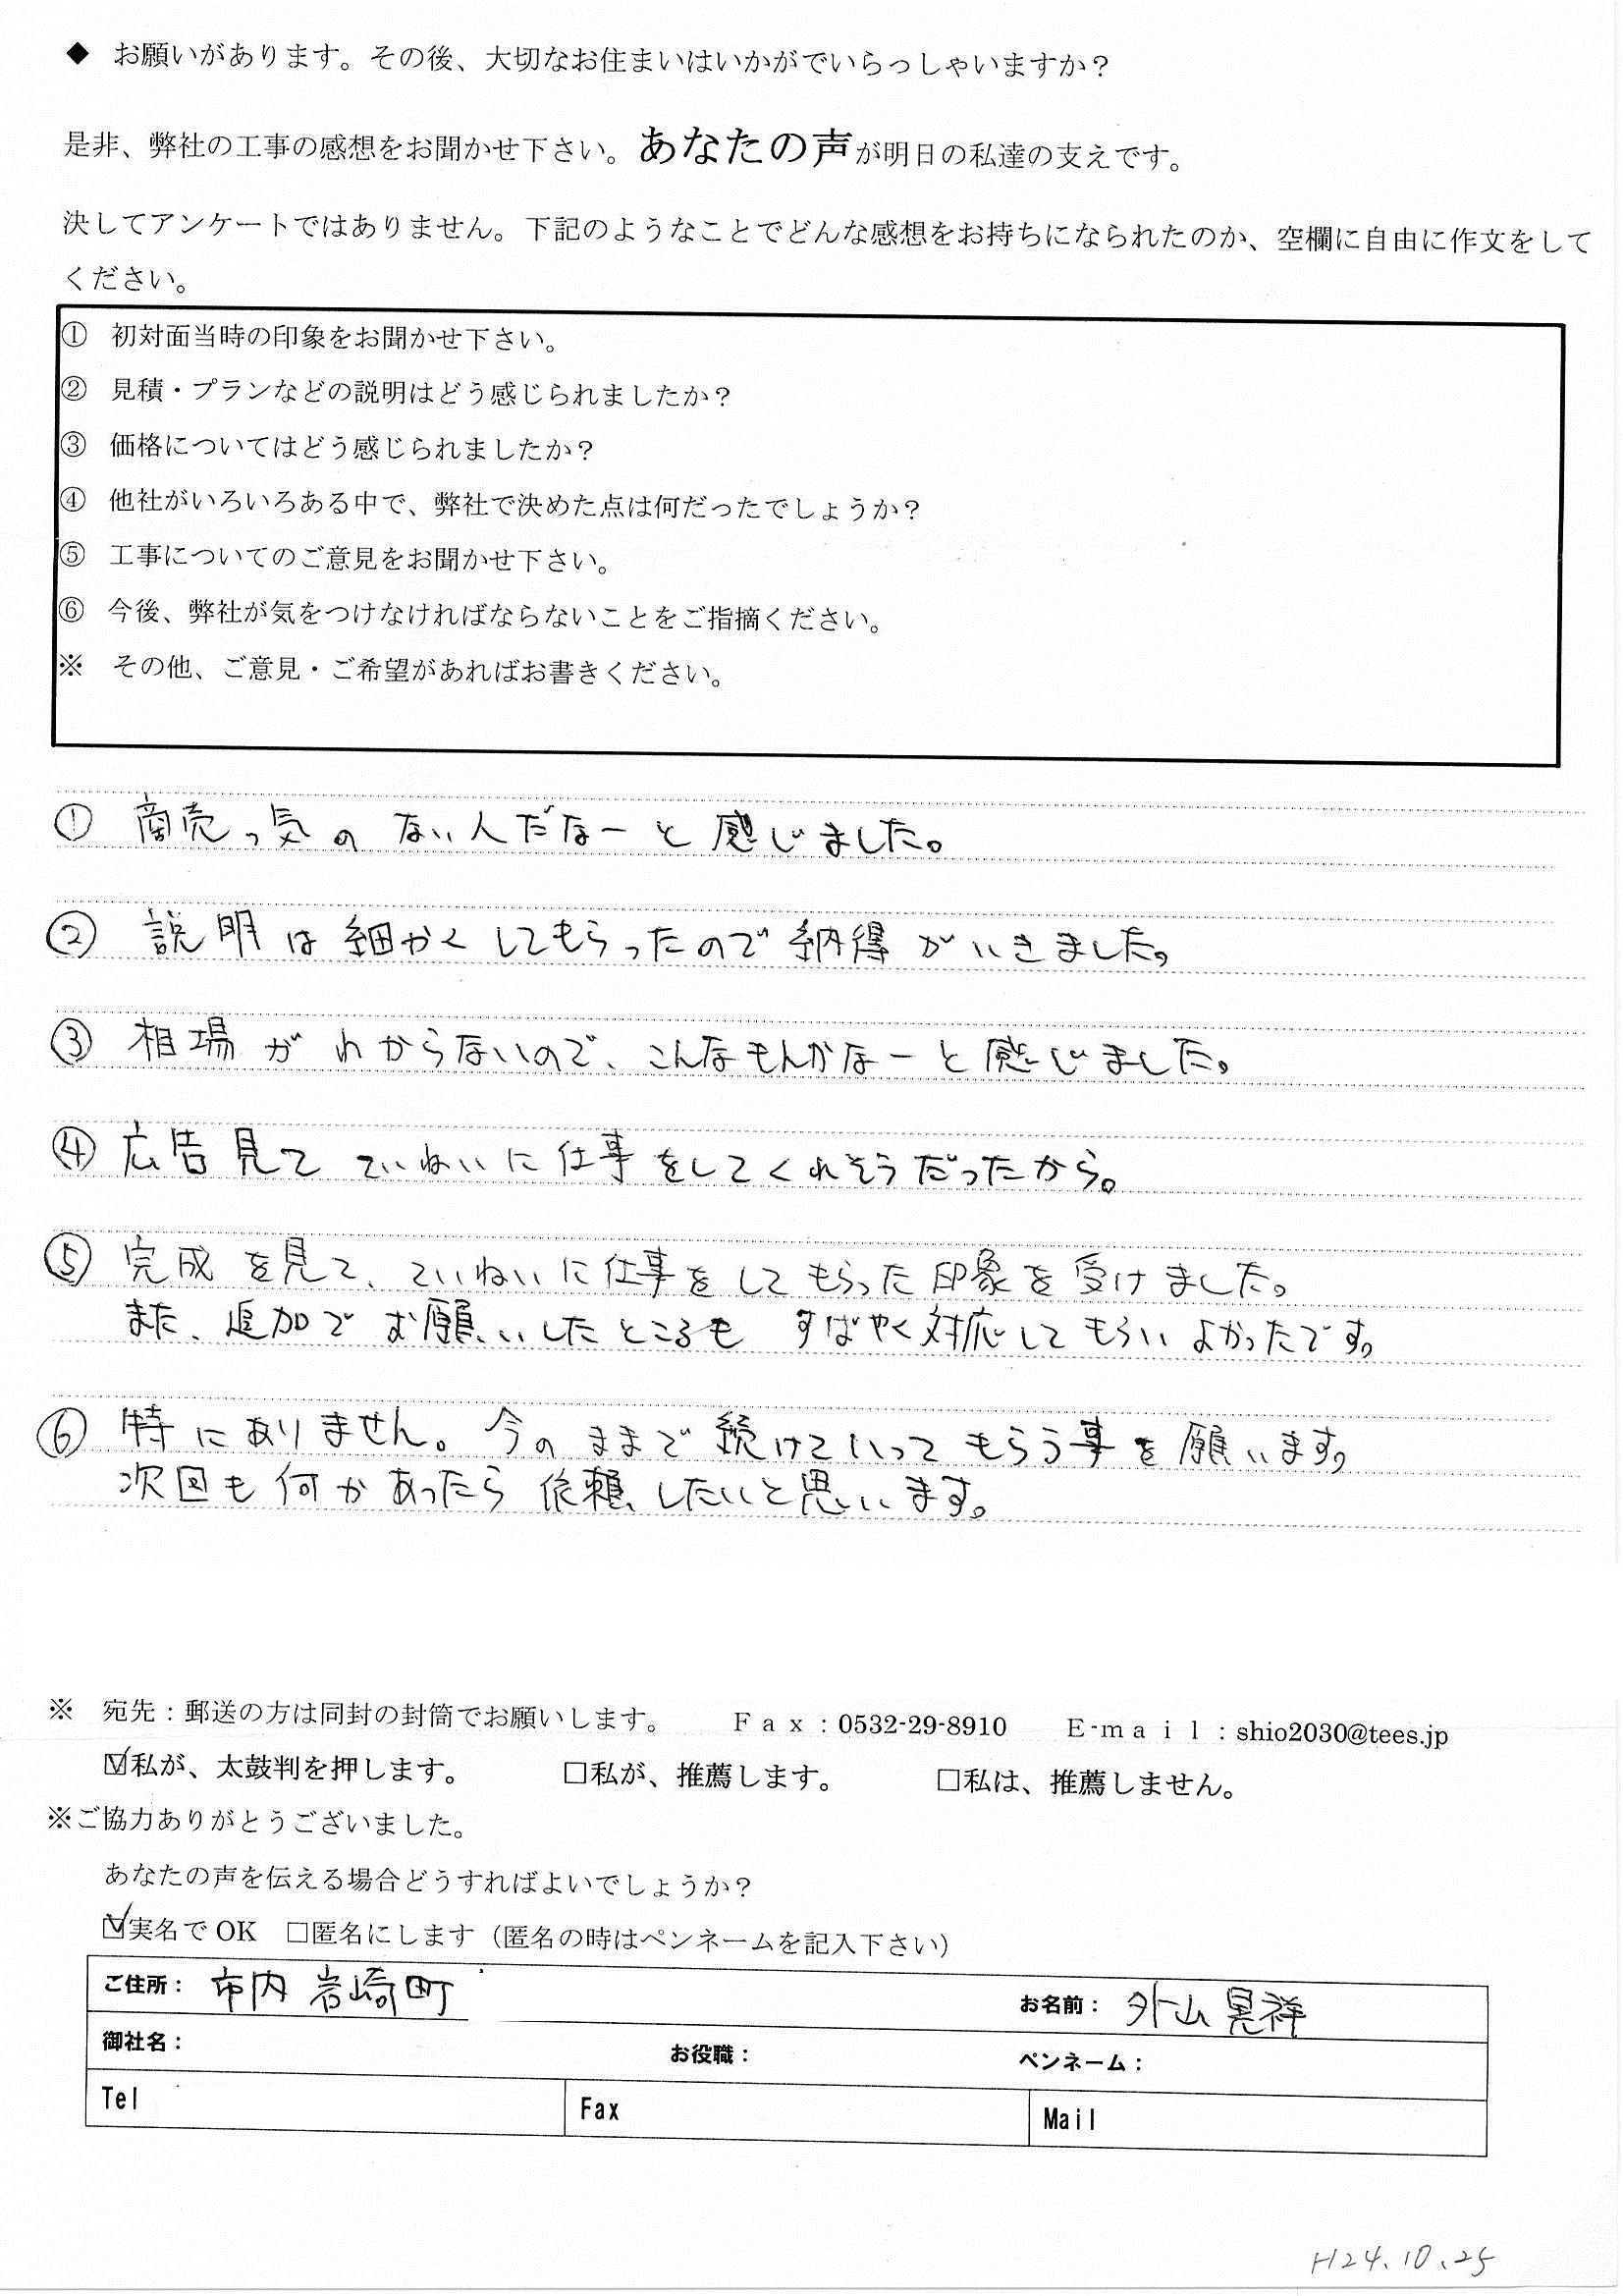 ◆ お願いがあります。その後、大切なお住まいはいかがでいらっしゃいますか？
是非、弊社の工事の感想をお聞かせ下さい。あなたの声が明日の私達の支えです。
決してアンケートではありません。下記のようなことでどんな感想をお持ちになられたのか、空欄に自由に作文をして
ください。
① 初対面当時の印象をお聞かせ下さい。
② 見積・プランなどの説明はどう感じられましたか？
③ 価格についてはどう感じられましたか？
④ 他社がいろいろある中で、弊社で決めた点は何だったでしょうか？
⑤ 工事についてのご意見をお聞かせ下さい。
⑥ 今後、弊社が気をつけなければならないことをご指摘ください。
※ その他、ご意見・ご希望があればお書きください。
① 商売っ気のない人だなーと感じました。
② 説明は細かくしてもらったので納得がいきました。
③ 相場がわからないので、こんなもんかなーと感じました。
④ 広告見てていねいに仕事をしてくれそうだったから。
⑤ 完成を見て、ていねいに仕事をしてもらった印象を受けました。
また、追加でお願いしたところもすばやく対応してもらいよかったです。
⑥ 特にありません。今のままで続けていってもらう事を願います。
次回も何かあったら依頼したいと思います。
※ 宛先：郵送の方は同封の封筒でお願いします。 Ｆａｘ：0532-29-8910 Ｅ-ｍａｉｌ：shio2030@tees.jp
☑私が、太鼓判を押します。 □私が、推薦します。 □私は、推薦しません。
※ご協力ありがとうございました。
あなたの声を伝える場合どうすればよいでしょうか？
☑実名でOK □匿名にします（匿名の時はペンネームを記入下さい）
ご住所： 市内 岩崎町 お名前： 外山 晃祥
御社名： お役職： ペンネーム：
Tel Fax Mail
H24.10.25